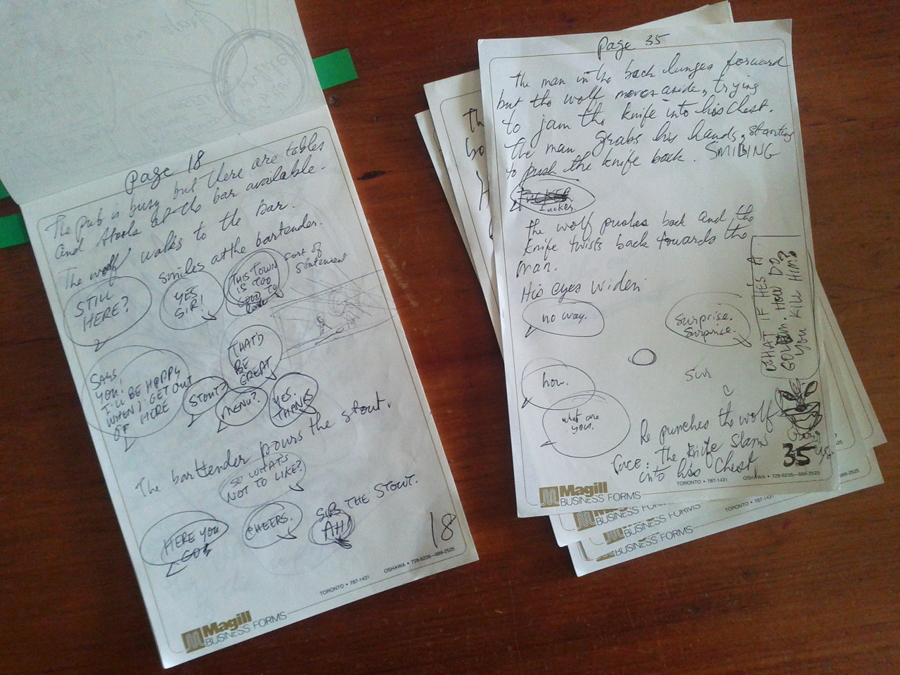 Page 18
The pub is busy but there are tables
and stools at the bar available.
The wolf walks to the bar.
smiles at the bartender.
STILL
HERE?
YES
SIR!
THIS TOWN
IS TOO
GOOD TO
sort of
sentiment
SAYS
YOU!
I'LL BE HAPPY
WHEN I GET OUT
OF HERE
THAT'D
BE
GREAT
STOUT?
MENU?
YES,
THANKS
The bartender pours the stout.
SO WHAT'S
NOT TO LIKE?
HERE YOU
GO!
CHEERS.
SIPS THE STOUT.
AH!
18
TORONTO • 787-1431
OSHAWA • 728-6235
Magill
BUSINESS FORMS
Page 35
The man in the back lunges forward
but the wolf moves aside, trying
to jam the knife into his chest.
The man grabs his hands, starting
to push the knife back. SMILING
The wolf pushes back and the
knife twists back towards the
man.
His eyes widen.
no way.
Surprise.
Surprise.
WHAT IF HE'S A
GOLEM HOW DO
YOU KILL HIM?
how.
what are
you.
He punches the wolf
face: the knife slams
into his chest
35
TORONTO • 787-1431
Magill
BUSINESS FORMS
BUSINESS FORMS
BUSINESS FORMS